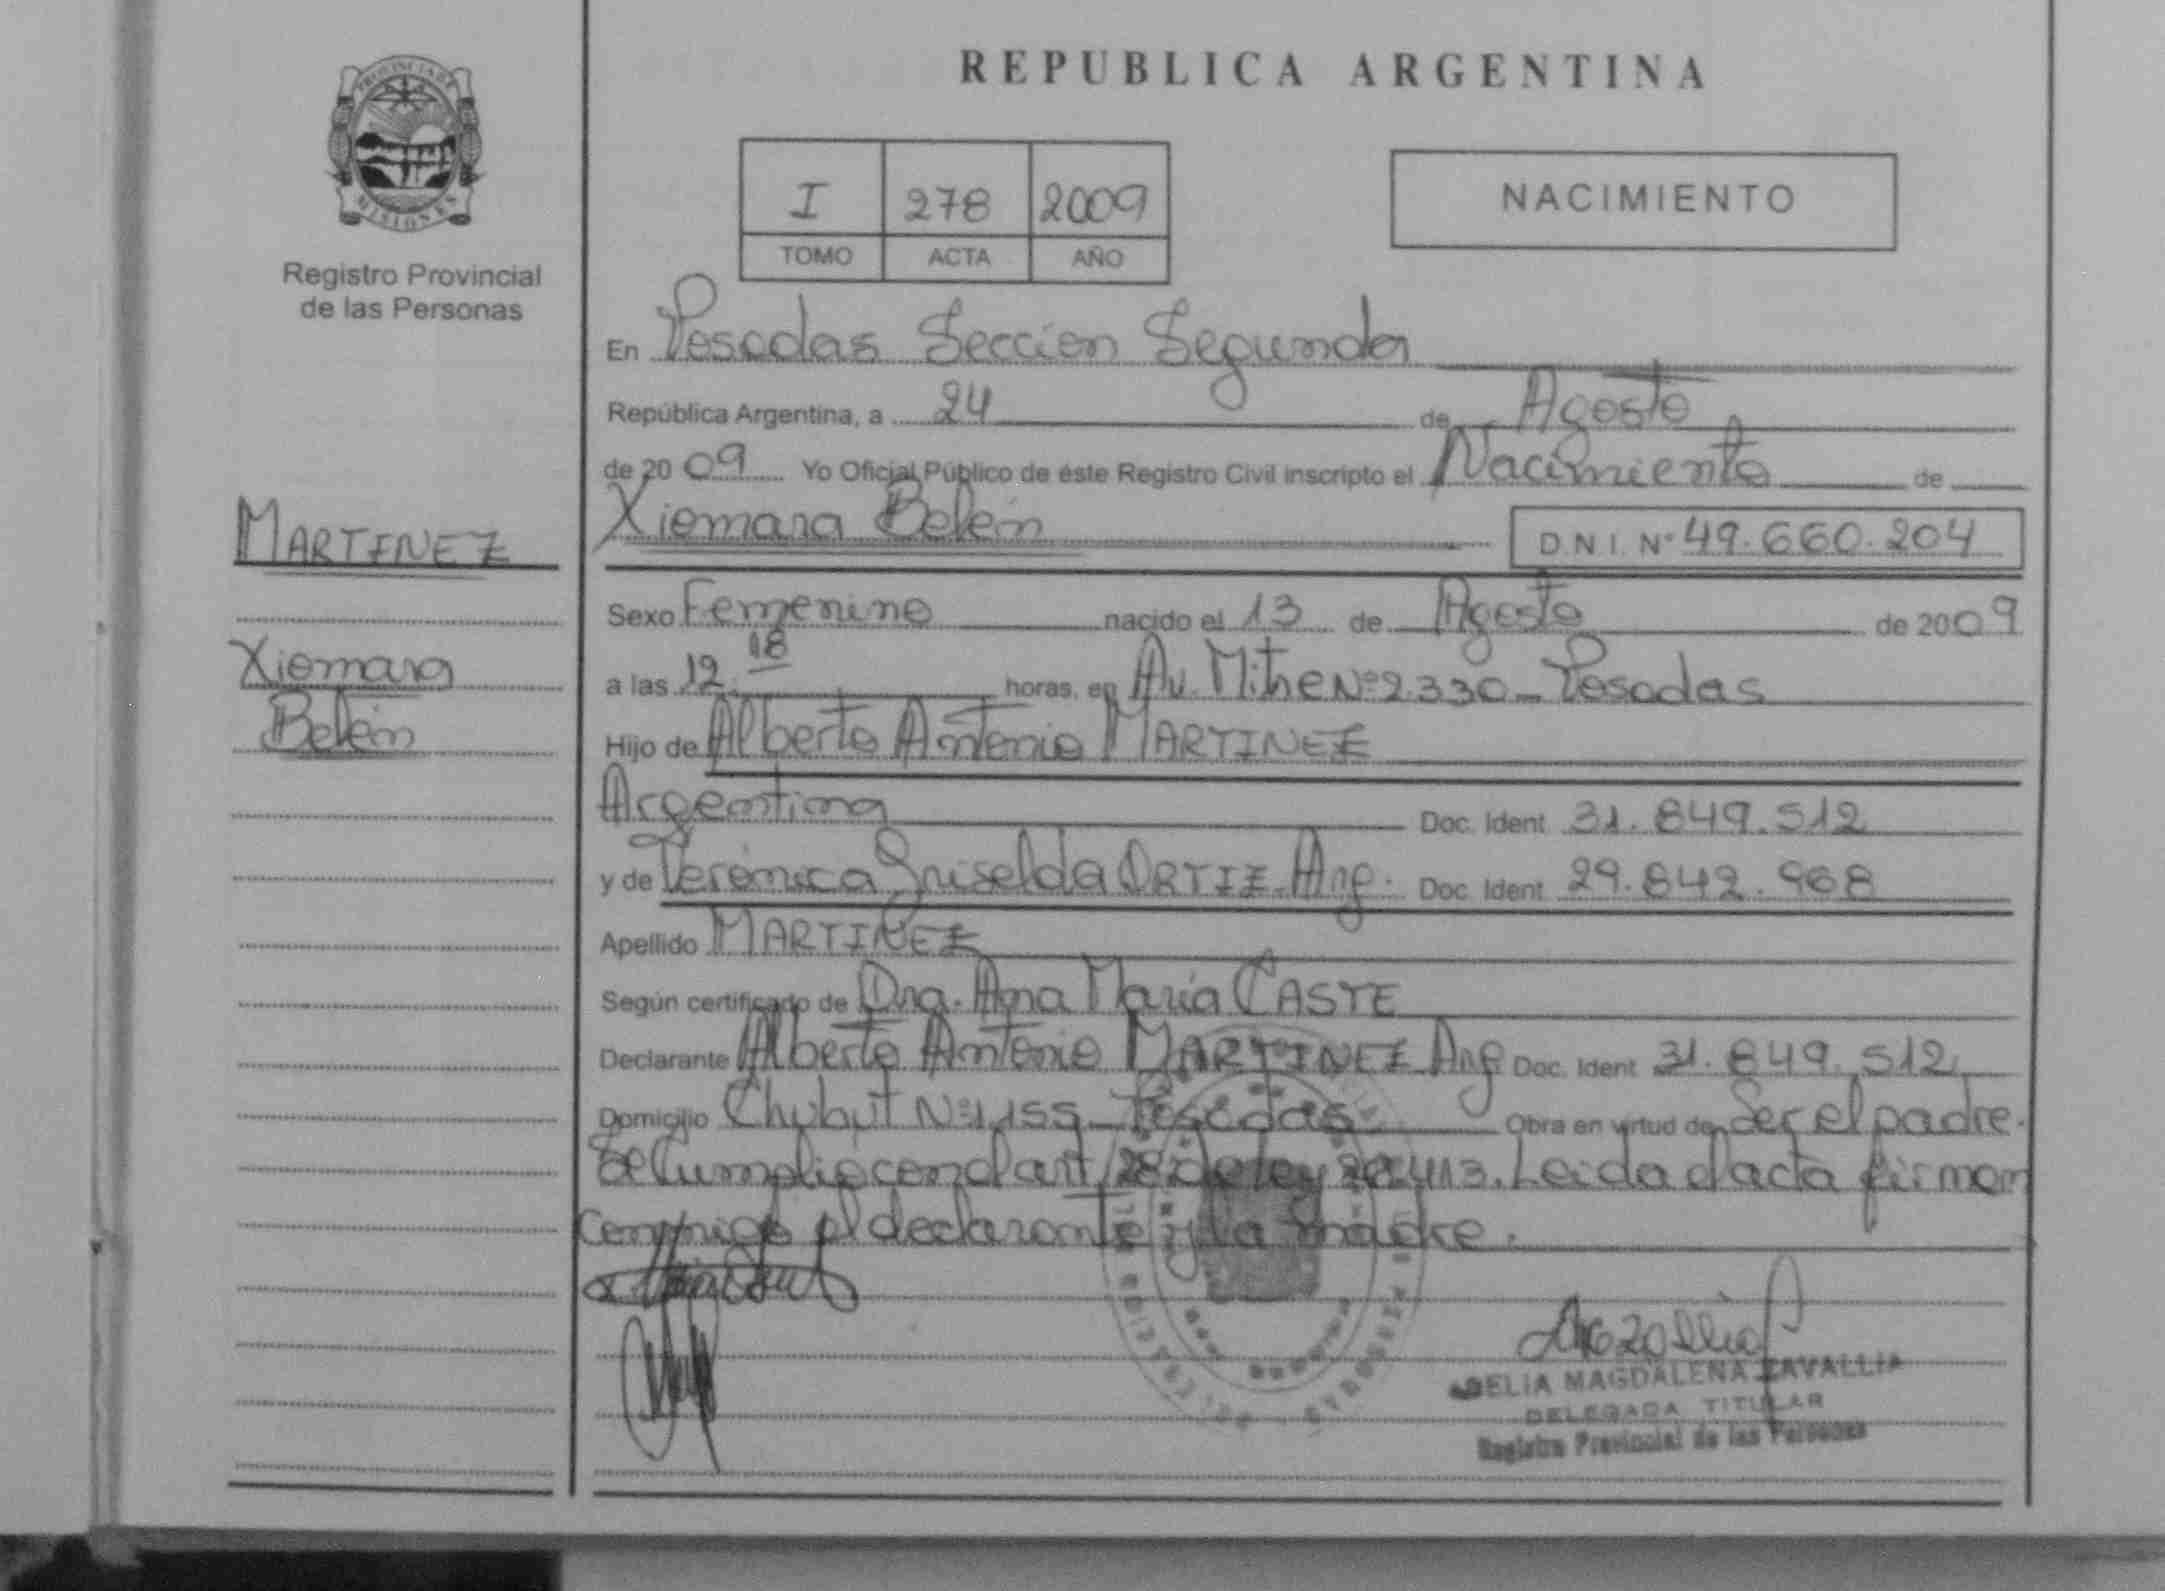 PROVINCIA DE
MISIONES
Registro Provincial
de las Personas
MARTINEZ
Xiomara
Belén
REPUBLICA ARGENTINA
I 278 2009
TOMO ACTA AÑO
NACIMIENTO
En Posadas Seccion Segunda
República Argentina, a 24 de Agosto
de 2009 Yo Oficial Público de éste Registro Civil inscripto el Nacimiento de
Xiomara Belén D.N.I. Nº 49.660.204
Sexo Femenino nacido el 13 de Agosto de 2009
a las 12 18 horas, en Av. Mitre Nº 2.330 - Posadas
Hijo de Alberto Antonio MARTINEZ
Argentina Doc. Ident 31.849.512
y de Verónica Griselda ORTIZ - Arg. Doc. Ident 29.842.968
Apellido MARTINEZ
Según certificado de Dra. Ana María CASTE
Declarante Alberto Antonio MARTINEZ Arg Doc. Ident 31.849.512
Domicilio Chubut Nº 1155 - Posadas Obra en virtud de Ser el padre.
Se Cumplio con el art 28 de ley 20.413. Leida el acta firman
Conmigo el declarante y la madre.
DELIA MAGDALENA ZAVALLIA
DELEGADA TITULAR
Registro Provincial de las Personas